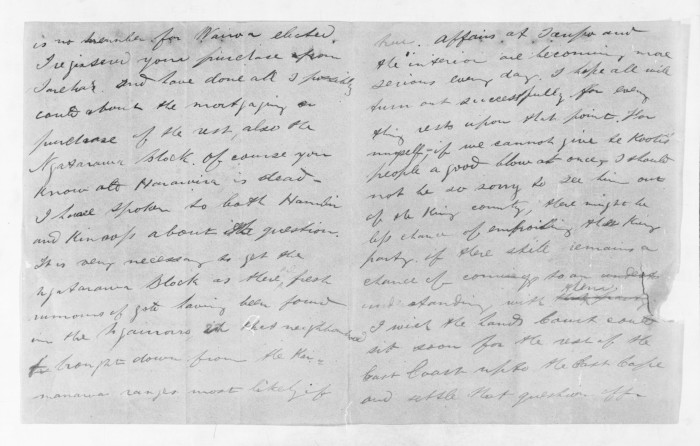 is no member for Wairoa elected.
I rejoined your purchase from
Tareha. and have done all I possibly
could about the mortgaging or
purchase of the rest, also the
Ngatarawa Block. Of course you
know all Harawira is dead -
I have spoken to both Hamlin
and about the question.
It is very necessary to get the
Ngatarawa Block as there, fresh
rumours of gold having been found
in the in that neighborhood
brought down from the Kai=
manawa ranges most likely if
here. Affairs at Taupo and
the interior are becoming more
serious every day. I hope all will
turn out successfully. for every
thing rests upon that point. For
myself, if we cannot give te Kooti's
people a good blow at once, I should
not be so sorry to see him out
of the King county, there might be
less chance of embroiling the King
party. if there still remains a
chance of coming to an
understanding with them
I wish the Lands Court could
sit soon for the rest of the
East Coast up to the East Cape
and settle that question off-